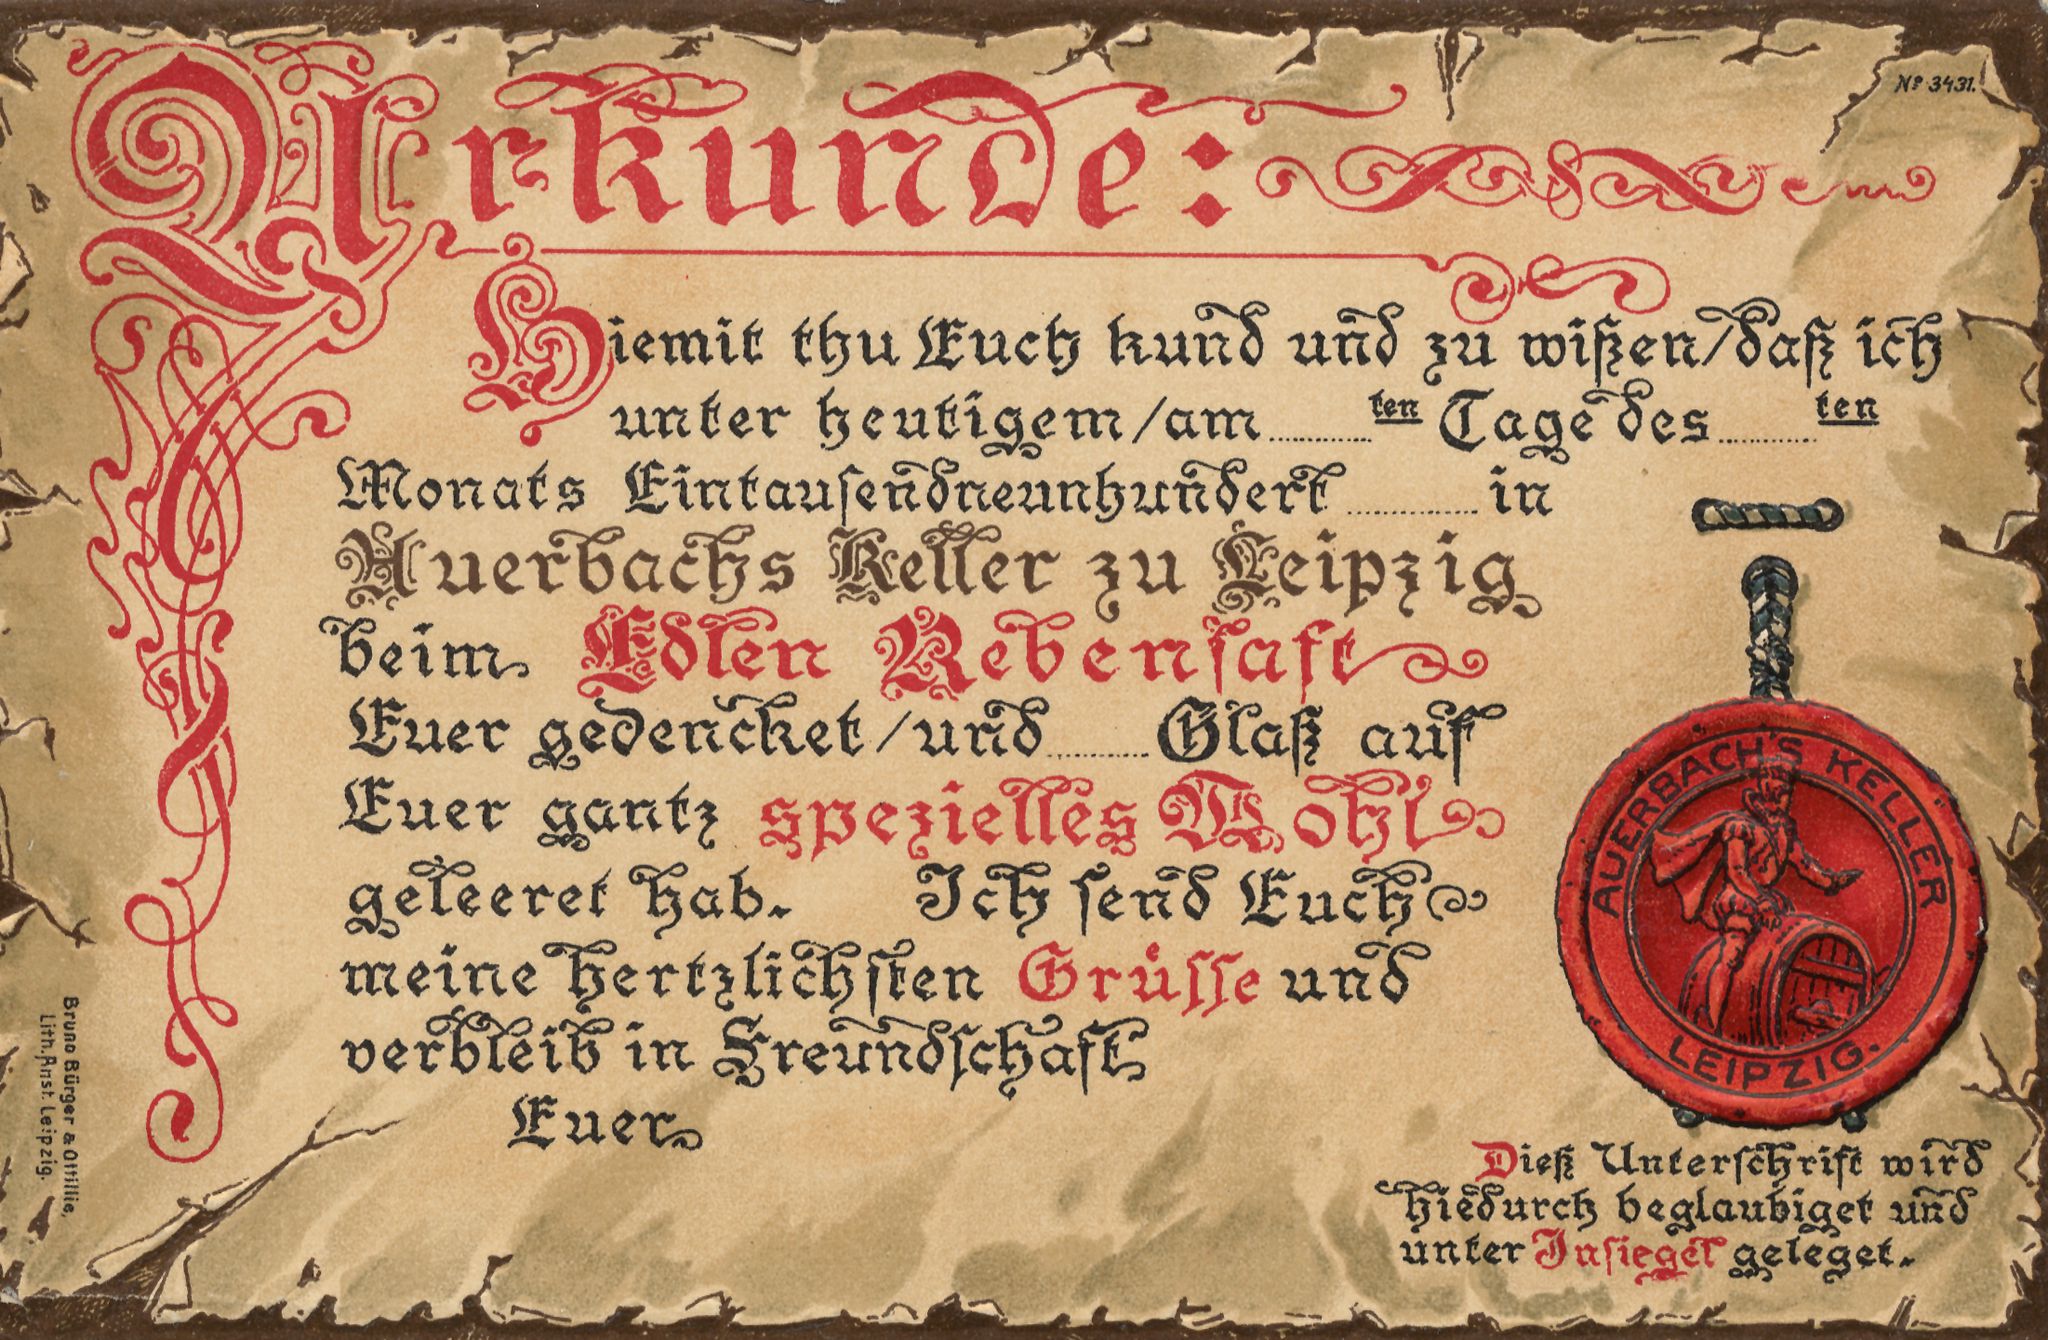 Urkunde:
Nº 3431.
Hiemit thu Euch kund und zu wißen/daß ich
unter heutigem/am..........ten Tage des..........ten
Monats Eintausendneunhundert............in
Auerbachs Keller zu Leipzig
beim Edlen Rebensaft
Euer gedencket/und..........Glaß auf
Euer gantz spezielles Wohl
geleeret hab. Ich send Euch
meine hertzlichsten Grüsse und
verbleib in Freundschaft
Euer
AUERBACH'S KELLER
LEIPZIG.
Dieß Unterschrift wird
hiedurch beglaubiget und
unter Insiegel geleget.
Bruno Bürger & Ottillie,
Lith. Anst. Leipzig.